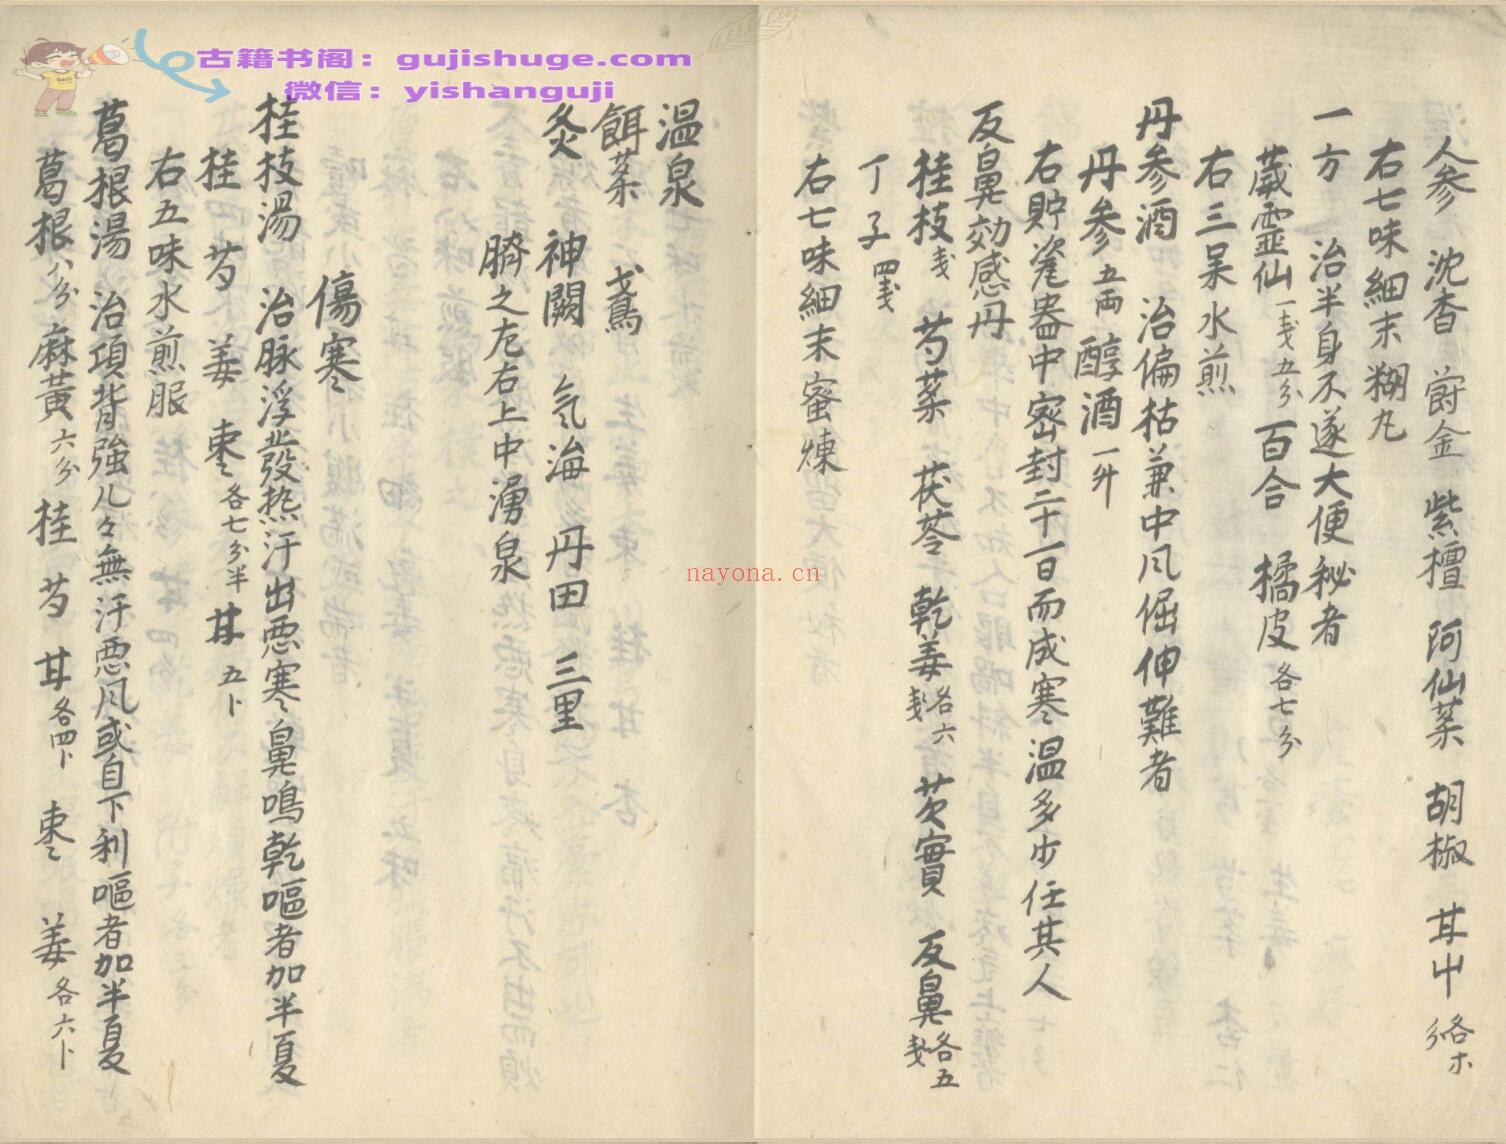 古籍书阁：gujishuge.com
微信：yishanguji
人參 沈香 欝金 紫檀 阿仙菜 胡椒 甘中 各等分
右七味細末糊丸
一方 治半身不遂大便秘者
葳霊仙一戔五分 百合 橘皮各七分
右三味水煎
丹参酒 治偏枯兼中风倔伸難者
丹参五両 醇酒一升
右貯瓷器中密封二十一日而成寒温多少任其人
反鼻効感丹
桂枝戔 芍菜 茯苓 乾姜各六戔 芡實 反鼻各五戔
丁子四戔
右七味細末蜜煉
温泉
餌菜 鳶
灸 神闕 気海 丹田 三里
臍之左右上中湧泉
傷寒
桂枝湯 治脉浮發热汗出悪寒鼻鳴乾嘔者加半夏
桂 芍 姜 棗各七分半 甘五卜
右五味水煎服
葛根湯 治項背強几々無汗悪风或自下利嘔者加半夏
葛根八分 麻黄六分 桂 芍 甘各四卜 棗 姜各六卜
nayona.cn